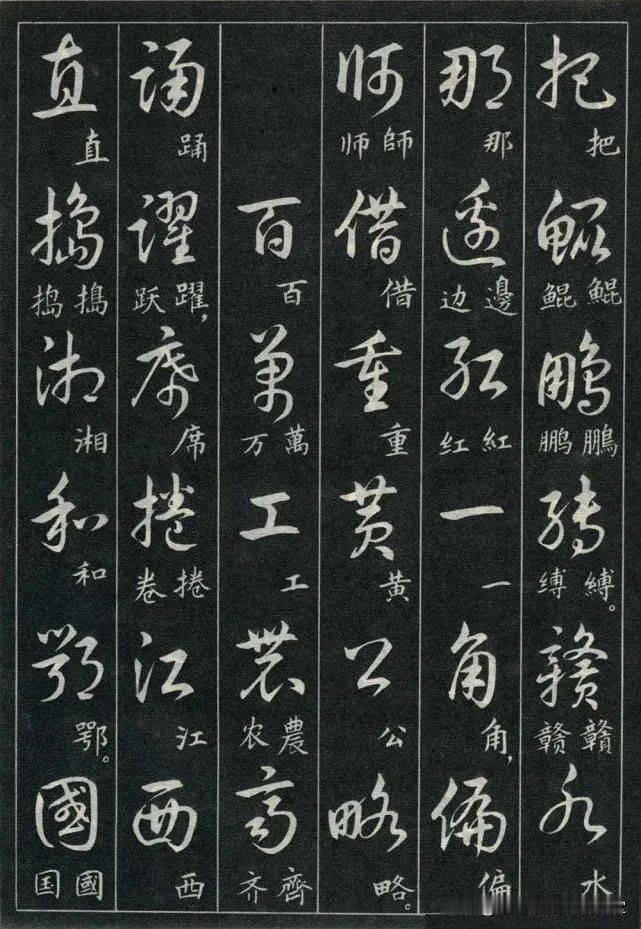 把 把 鯤 鯤 鲲 鵬 鵬 鹏 縛 縛 缚。 贛 贛 赣 水 水
那 那 邊 邊 边 紅 紅 红 一 一 角 角, 偏 偏
師 師 师 借 借 重 重 黄 黄 公 公 略 略。
百 百 萬 萬 万 工 工 農 農 农 齊 齊 齐
踊 踊 躍 躍 跃, 席 席 捲 捲 卷 江 江 西 西
直 直 搗 搗 捣 湘 湘 和 和 鄂 鄂。 國 國 国